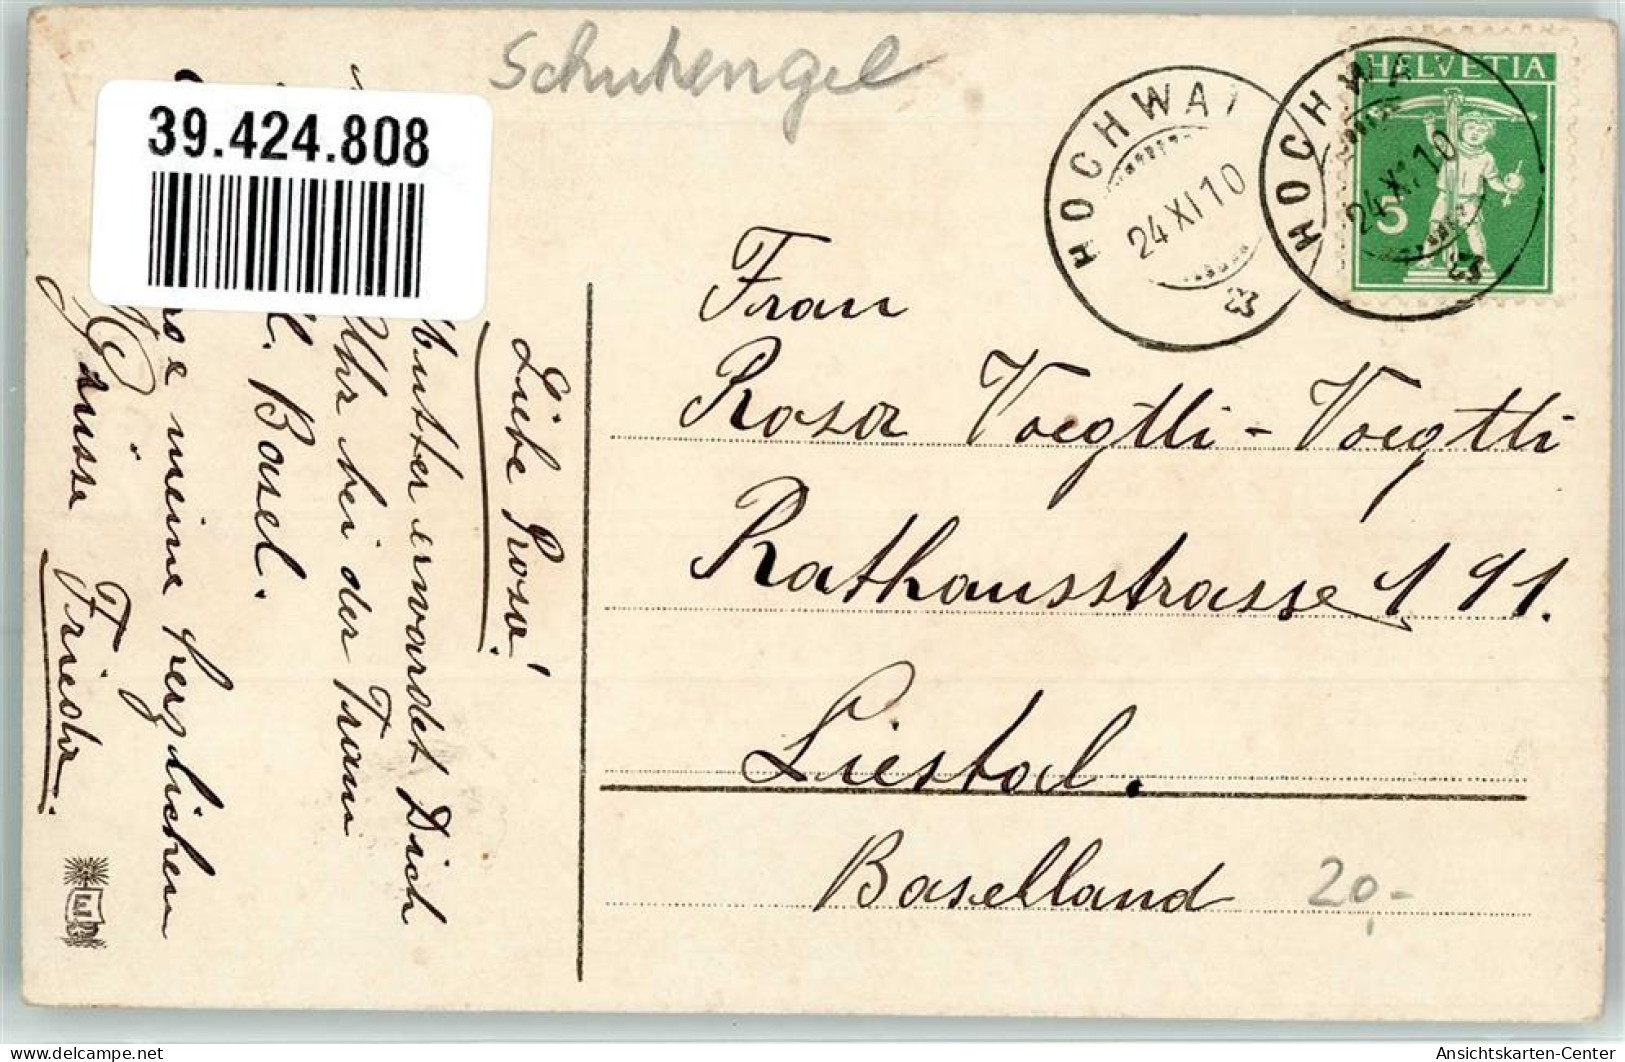 Schutzengel
39.424.808
HELVETIA
5
HOCHWA
24 XI 10
HOCHWA
24 XI 10
Frau
Rosa Voegtli-Voegtli
Rathausstrasse 191.
Liestal.
Baselland
20,-
Liebe Rosa!
Mutter erwardet Dich
Uhr bei der Tram
Basel.
meine herzlichen
Grüsse
Frieda.
Ansichtskarten-Center